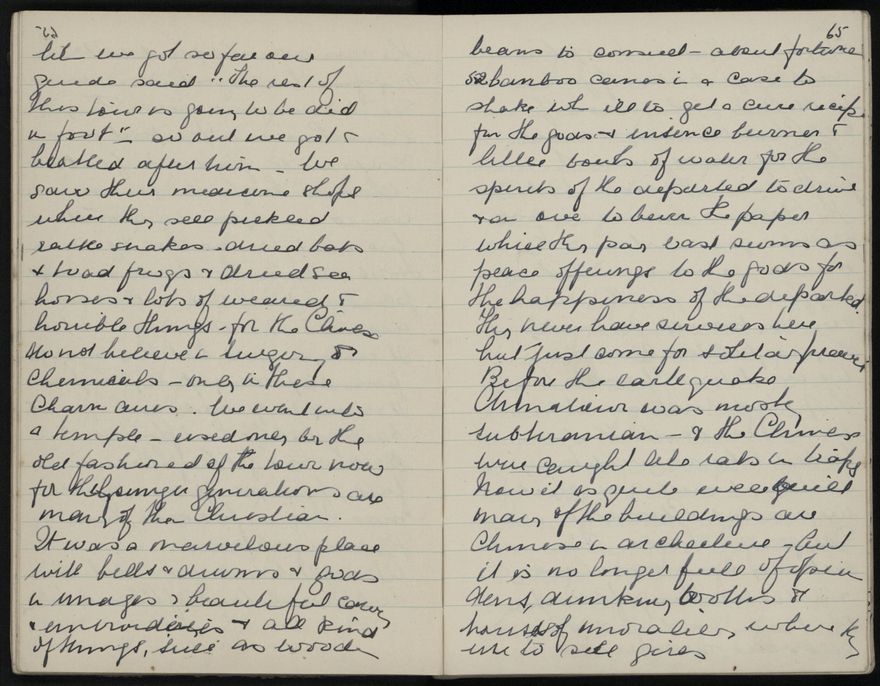 62
we got so far our
guide said "The rest of
this tour is going to be did
a foot" - so out we got &
walked after him - We
saw their medicine shops
where they sell pickled
rattle snakes - dried bats
& toad frogs & dried sea
horses & lots of weird &
horrible things - for the Chinese
do not believe in surgery or
Chemicals - only in these
Charm cures. We went into
a temple - used only by the
old fashioned of the town now
for the younger generations are
many of them Christian.
It was a marvelous place
with bells & drums & gods
& images & beautiful carvings
& embroideries & all kinds
of things, such as wooden
65
beans to consult - about fortune
52 bamboo canes in a case to
shake when ill to get a cure recipe
from the gods - & insence burner &
little bowls of water for the
spirits of the departed to drink
& an ove to burn the paper
which they pay vast sums as
peace offerings to the gods for
the happiness of the departed.
They never have services here
but just come for
Before the earthquake
Chinatown was mostly
subteranian - & the Chinese
were caught like rats in traps
Now it is quite well built
many of the buildings are
Chinese in archecture - but
it is no longer full of opium
dens, drinking booths &
houses of where they
use to sell girls